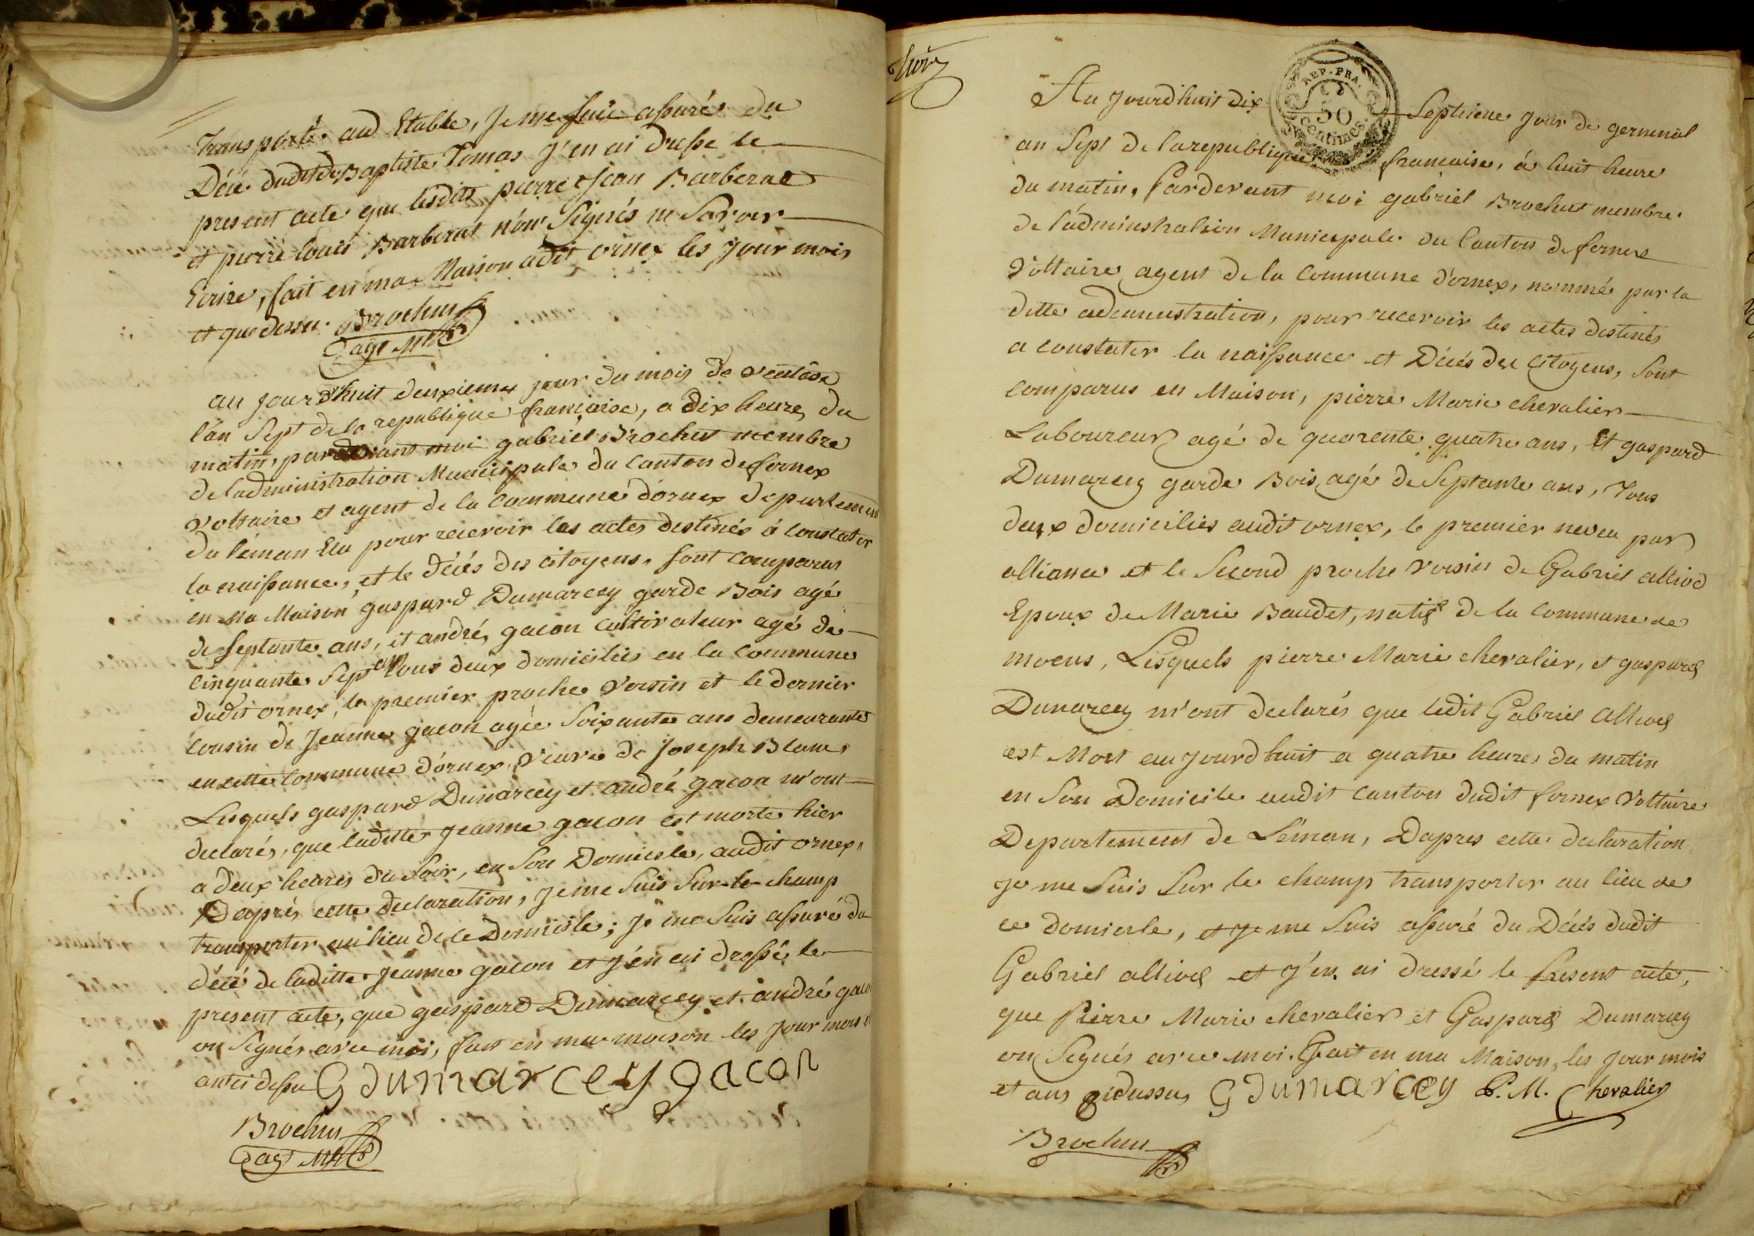 transporté aud Etable, Je me suis assuré du
Décé dudit Baptiste Tomas J'en ai dressé le
present acte que lesdits pierre Jean Barberat
et pierre louis Barberat n'on Signés ne Savoir
Ecrire, fait en ma Maison adit ornex les Jour mois
et que dessu. Brochu
agt Ml
au jourd'huit deuxieme jour du mois de ventôse
l'an Sept de la republique française, a dix heure du
matin, pardevant moi gabriel Brochut membre
de ladministration Municipale du Canton de fornex
Voltaire et agent de la Commune d'ornex departement
du léman Elu pour recevoir les actes destinés à constater
la naissance, et le décés des citoyens, sont comparus
en Ma Maison gaspard Dumarcey garde Bois agé
de septante ans, et andré gacon cultivateur agé de
cinquante Sept ans tous deux domiciliés en la commune
dudit ornex, le premier proche voisin et le dernier
cousin de Jeanne gacon agée Soixante ans demeurante
en cette commune d'ornex veuve de Joseph Blanc,
Lesquels gaspard Dumarcey et andré gacon m'ont
declarés, que laditte Jeanne gacon est morte hier
a deux heures du Soir, en Son Domicile, audit ornex,
D'aprés cette declaration, Je me Suis Sur le champ
transporter au lieu de ce Domicile; Je me Suis assuré du
décé de laditte Jeanne gacon et J'en ai dressé le
present acte, que gaspard Dumarcey et andré gacon
on Signés avec moi, fait en ma maison les Jour mois
an ci dessu G dumarcey gacon
Brochu
agt Ml
REP. FRA.
50
centimes.
Au Jourd'huit dix Septieme Jour de germinal
an Sept de la republique française, à huit heure
du matin, Pardevant moi gabriel Brochut membre
de l'administration Municipale du Canton de fornex
Voltaire agent de la Commune d'ornex, nommé par la
ditte administration, pour recevoir les actes destinés
a constater la naissance et Décés des Citoyens, Sont
Comparus en Maison, pierre Marie chevalier
Laboureur agé de quarente quatre ans, Et gaspard
Dumarcey garde Bois, agé de Septante ans, Tous
deux domiciliés audit ornex, le premier neveu par
alliance et le Second proche Voisin de Gabriel alliod
Epoux de Marie Baudet, natif de la commune de
moens, Lesquels pierre Marie chevalier, et gaspard
Dumarcey m'ont declarés que ledit Gabriel Alliod
est Mort au Jourd'huit a quatre heures du matin
en Son Domicile audit canton dudit fornex Voltaire
Departement de Léman, Dapres cette declaration,
je me Suis Sur le champ transporter au lieu de
ce domicile, et Je me Suis assuré du Décés dudit
Gabriel alliod et J'en ai dressé le present acte,
que Pierre Marie chevalier et Gaspard Dumarcey
on Signés avec moi. Fait en ma Maison, les Jour mois
et ans cidessus G dumarcey P. M. Chevalier
Brochu